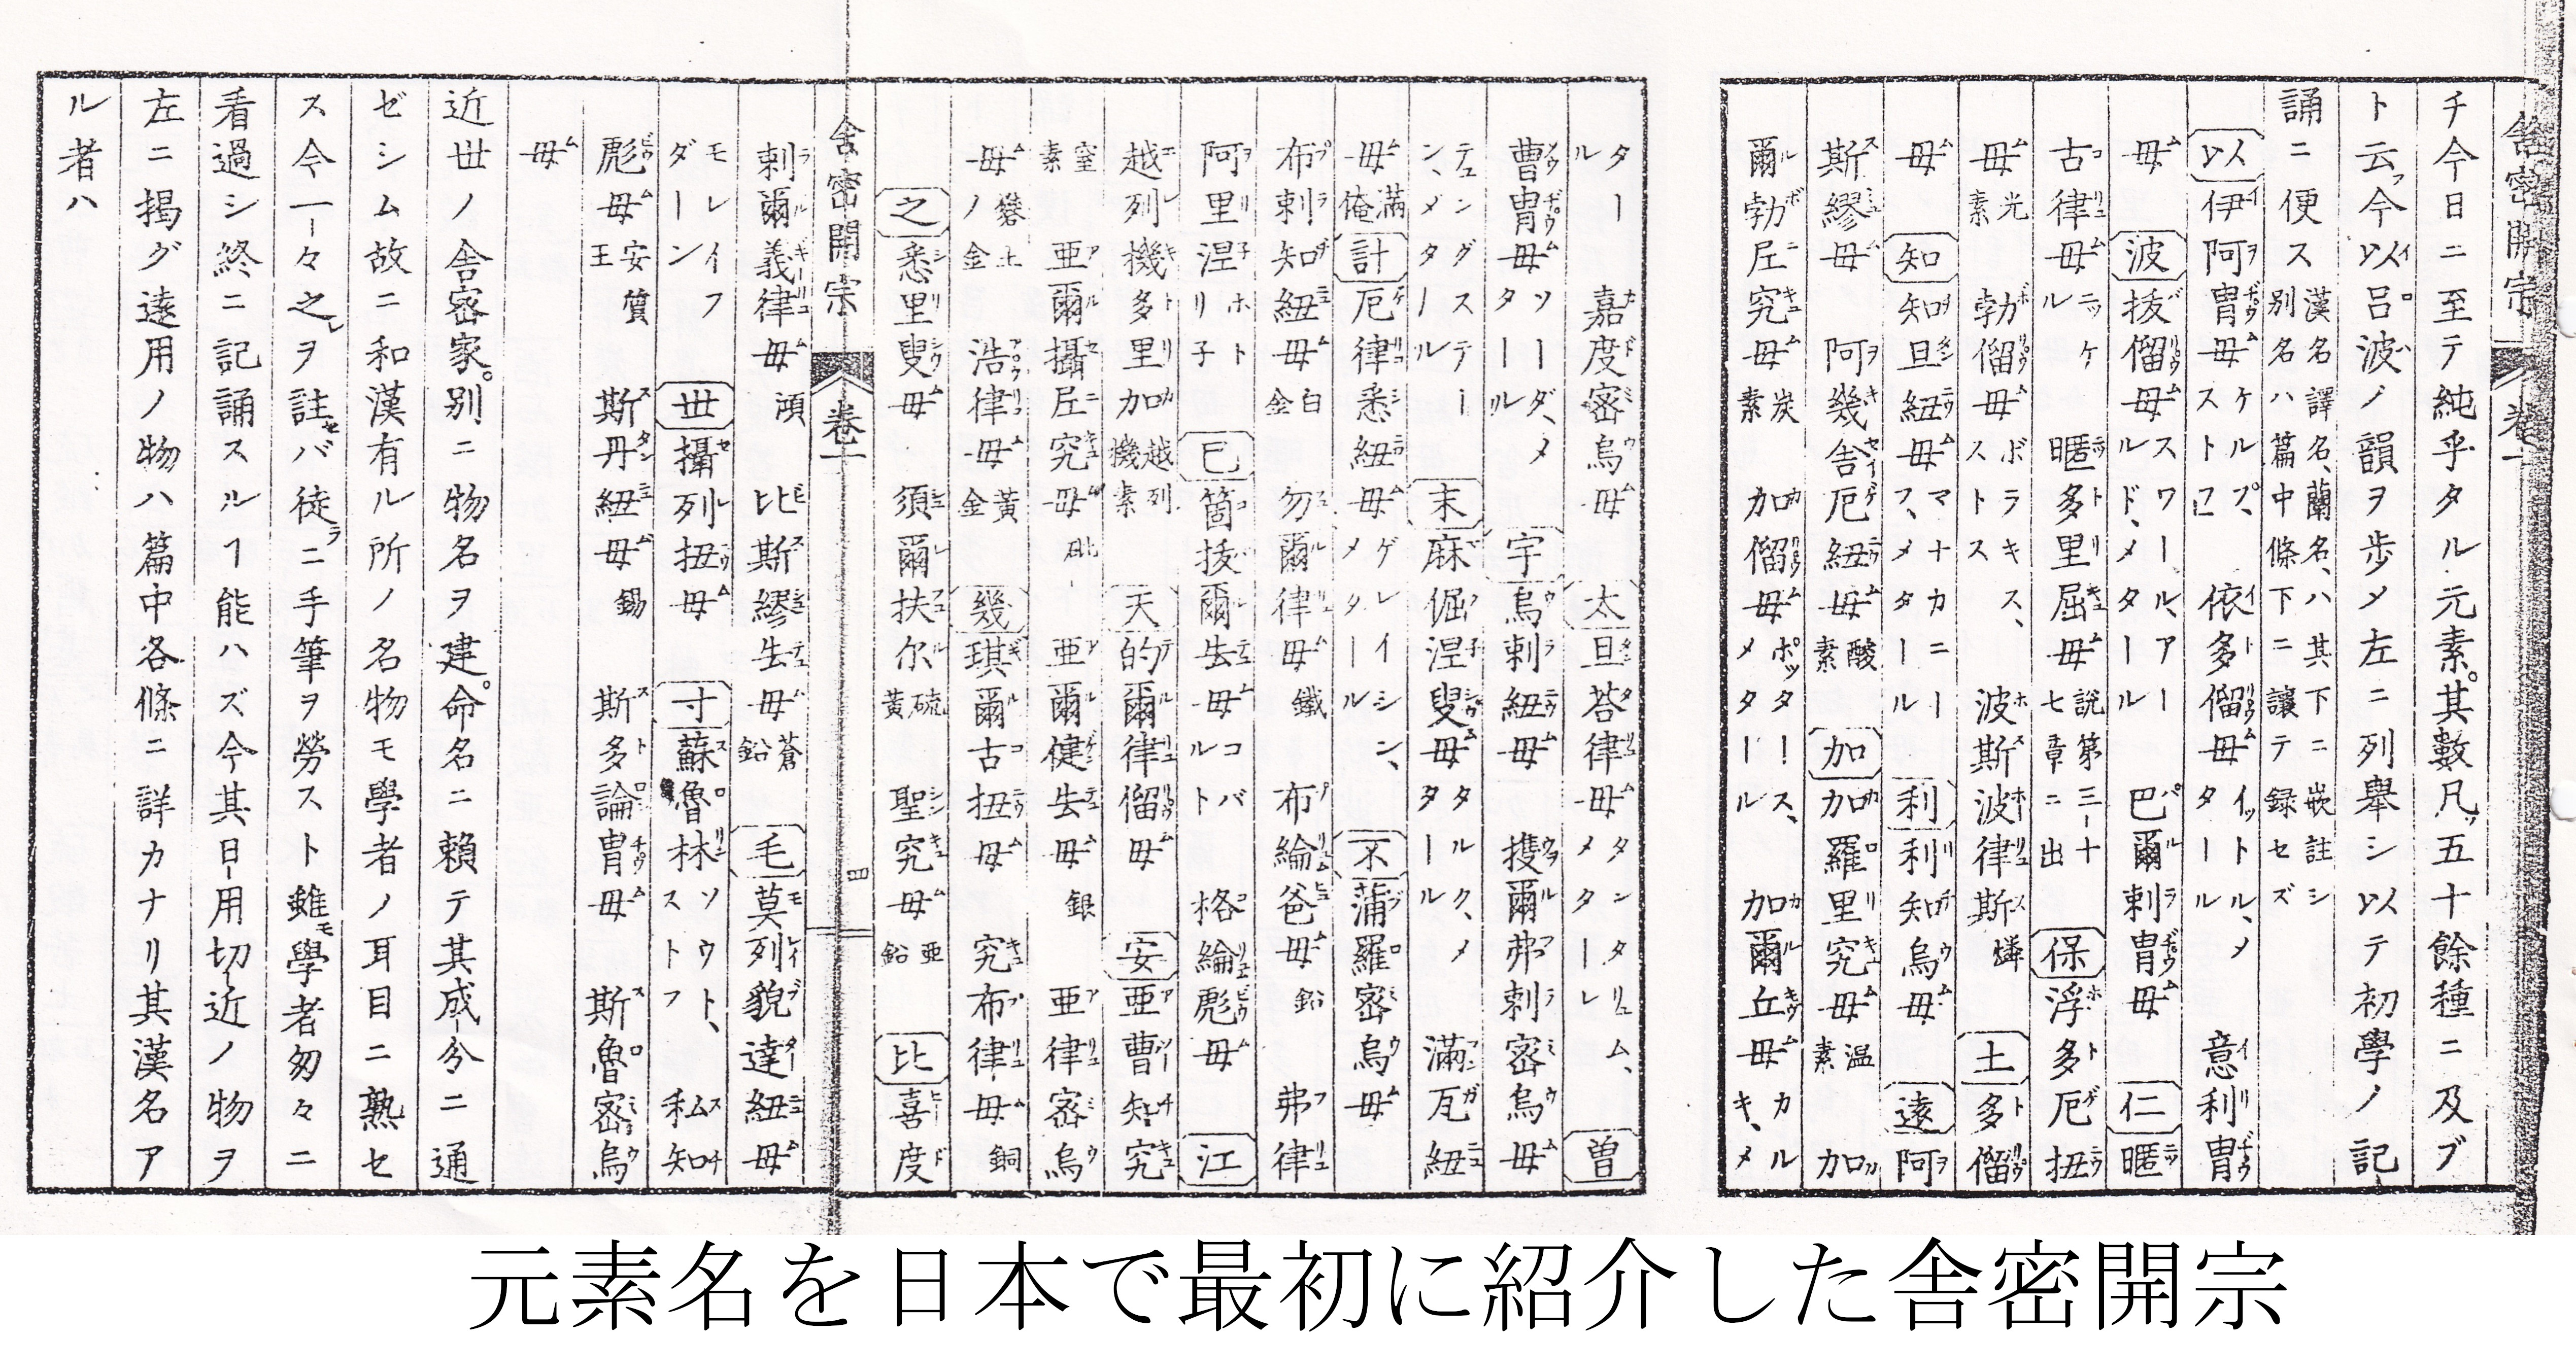 舎密開宗 卷一
チ今日ニ至テ純乎タル元素。其數凡五十餘種ニ及ブ
ト云今以呂波ノ韻ヲ歩メ左ニ列舉シ以テ初學ノ記
誦ニ便ス 漢名譯名、蘭名、ハ其下ニ嵌註シ別名ハ篇中條下ニ讓テ録セズ
以 伊阿胄母 ケルプ、スト 依多溜母 イットル、メタール 意利胄
母 波 抜溜母 スワール、アールド、メタール 巴爾剌胄母 仁 暱
古律母 ニッケル 暱多里屈母 説第三十七章ニ出 保 浮多厄扭
母 光素 勃溜母 ボラキス、ストス 波斯波律斯 燐 土 多溜
母 知 知旦紐母 マナカニーフ、メタール 利 利知烏母 遠 阿
斯繆母 阿幾舎厄紐母 酸素 加 加羅里究母 温素 加
爾勃尼究母 炭素 加溜母 ポッタース、メタール 加爾丘母 カルキ、メ
タール 嘉度密烏母 太 旦荅律母 タンタリュム、メタターレ 曽
曹胄母 ソーダ、メタール 宇 烏剌紐母 撓爾弗剌密烏母
テュングステーン、メタール 末 麻倔涅叟母 タルク、メタール 滿瓦紐
母 滿俺 計 厄律悉紐母 ゲレイシン、メタール 不 蒲羅密烏母
布剌知紐母 白金 勿爾律母 鐵 布綸爸母 鉛 弗律
阿里涅 ホトリ子 己 箇抜爾去母 コバルト 格綸彪母 江
越列機多里加 越列機素 天 的爾律溜母 安 亜曹知究
窒素 亜爾攝尼究母 砒 亜爾健去母 銀 亜律密烏
母 礬土ノ金 浩律母 黄金 幾 琪爾古扭母 究布律母 銅
之 悉里叟母 須爾扶尓 硫黄 聖究母 亜鉛 比 喜度
舎密開宗 卷一 四
剌爾義律母 澒 比斯繆去母 蒼鉛 毛 莫列貌達紐母
モレイフダーレン 世 攝列扭母 寸 蘇魯林 ソウト、ストフ 私知
彪母 安質王 斯丹紐母 錫 斯多論胄母 斯魯密烏
母
近世ノ舎密家。別ニ物名ヲ建。命名ニ頼テ其成分ニ通
ゼシム故ニ和漢有ル所ノ名物モ學者ノ耳目ニ熟セ
ス今一々之ヲ註セバ徒ニ手筆ヲ勞スト雖モ學者匆々ニ
看過シ終ニ記誦スルヿ能ハズ今其日用切近ノ物ヲ
左ニ掲グ遠用ノ物ハ篇中各條ニ詳カナリ其漢名ア
ル者ハ
元素名を日本で最初に紹介した舎密開宗